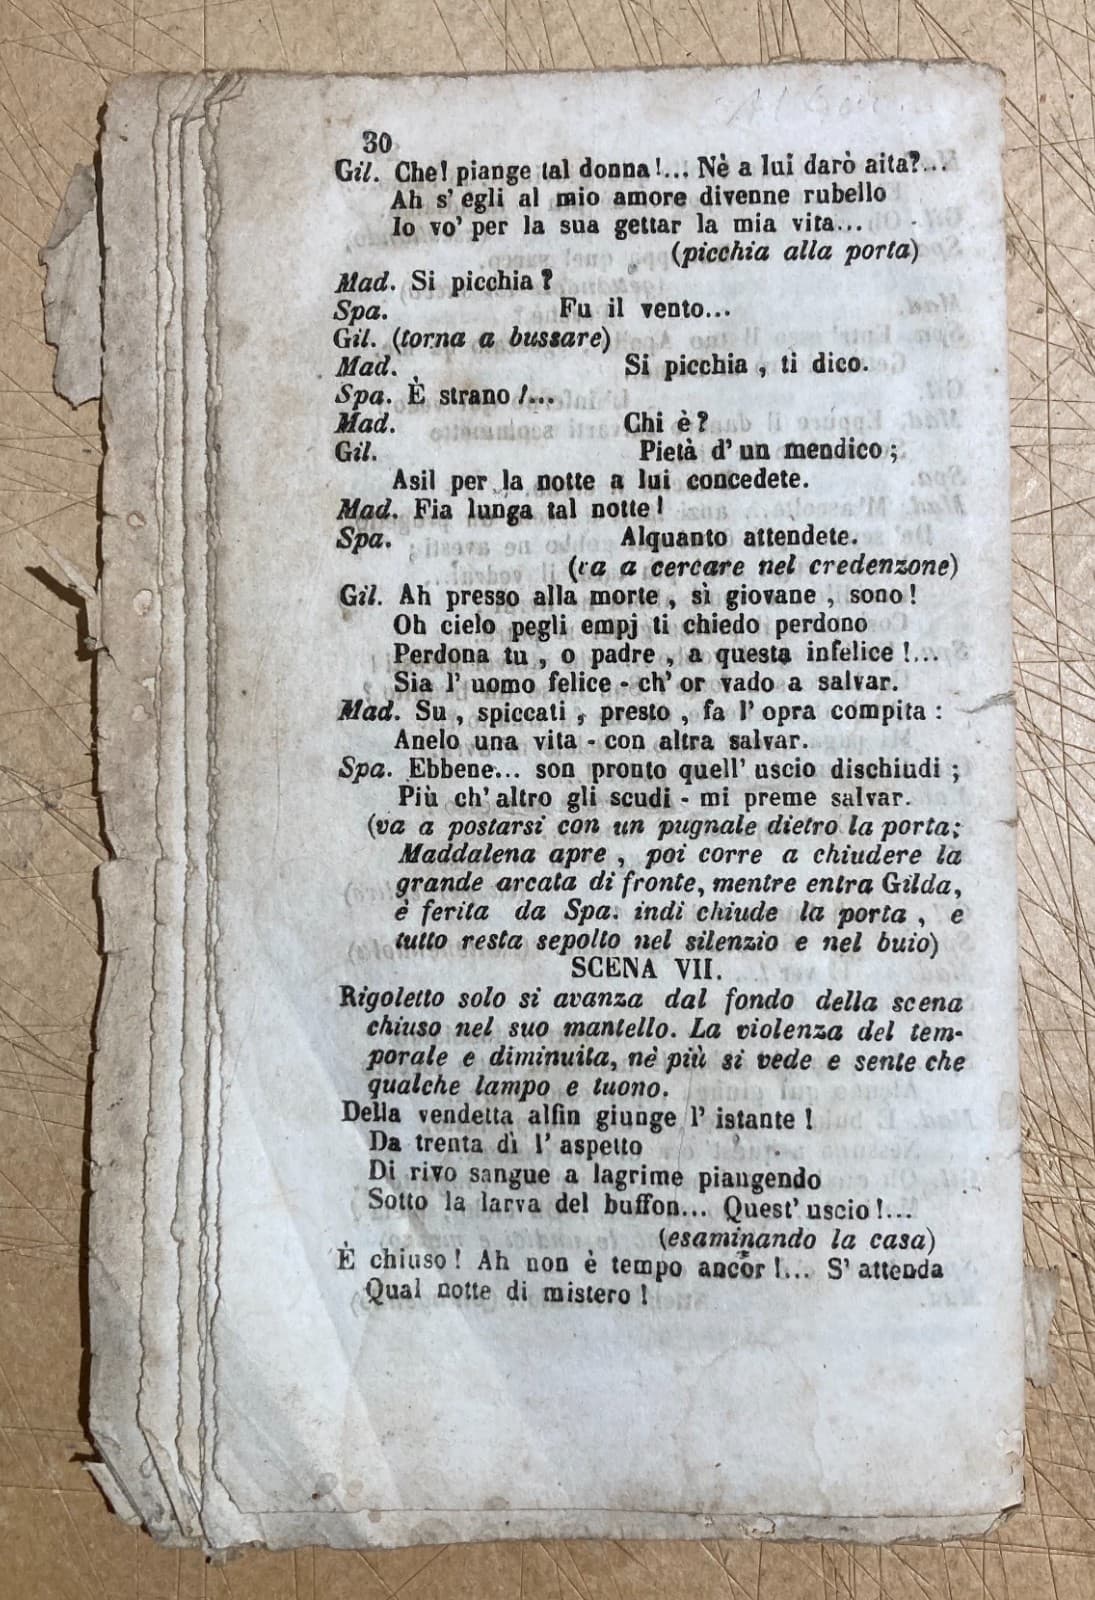 30
Gil. Che! piange tal donna!... Nè a lui darò aita?...
Ah s' egli al mio amore divenne rubello
Io vo' per la sua gettar la mia vita...
(picchia alla porta)
Mad. Si picchia?
Spa. Fu il vento...
Gil. (torna a bussare)
Mad. Si picchia, ti dico.
Spa. È strano!...
Mad. Chi è?
Gil. Pietà d' un mendico;
Asil per la notte a lui concedete.
Mad. Fia lunga tal notte!
Spa. Alquanto attendete.
(va a cercare nel credenzone)
Gil. Ah presso alla morte, sì giovane, sono!
Oh cielo pegli empj ti chiedo perdono
Perdona tu, o padre, a questa infelice!...
Sia l' uomo felice - ch' or vado a salvar.
Mad. Su, spiccati, presto, fa l' opra compita:
Anelo una vita - con altra salvar.
Spa. Ebbene... son pronto quell' uscio dischiudi;
Più ch' altro gli scudi - mi preme salvar.
(va a postarsi con un pugnale dietro la porta;
Maddalena apre, poi corre a chiudere la
grande arcata di fronte, mentre entra Gilda,
è ferita da Spa. indi chiude la porta, e
tutto resta sepolto nel silenzio e nel buio)
SCENA VII.
Rigoletto solo si avanza dal fondo della scena
chiuso nel suo mantello. La violenza del tem-
porale e diminuita, nè più si vede e sente che
qualche lampo e tuono.
Della vendetta alfin giunge l' istante!
Da trenta dì l' aspetto
Di rivo sangue a lagrime piangendo
Sotto la larva del buffon... Quest' uscio!...
(esaminando la casa)
È chiuso! Ah non è tempo ancor!... S' attenda
Qual notte di mistero!